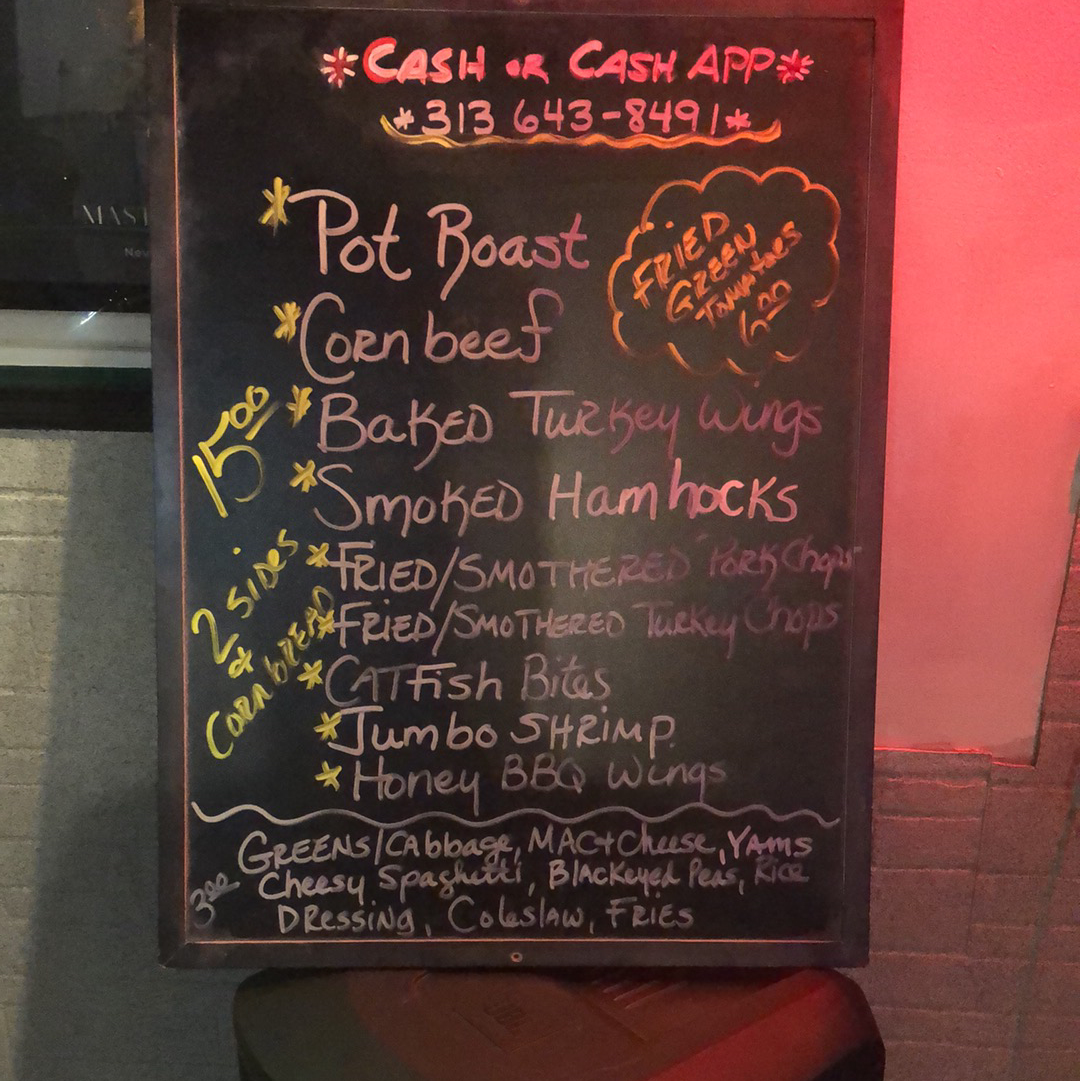 *CASH OR CASH APP*
*313 643-8491*
*Pot Roast
FRIED
GREEN
Tomatoes
6.00
*Corn beef
15.00
*BaKED Turkey Wings
*SmoKED Ham hocks
2 SiDES
&
Corn bREAD
*FRIED/SMOTHERED Pork Chops
*FRIED/SMOTHERED Turkey Chops
*CATFish Bites
*Jumbo SHRimp
*Honey BBQ Wings
GREENS/Cabbage, MAC+Cheese, YAms
Cheesy Spaghetti, BlacKeyed Peas, Rice
3.00
DRessing, Coleslaw, FRiEs
MAST
Nov
JBL